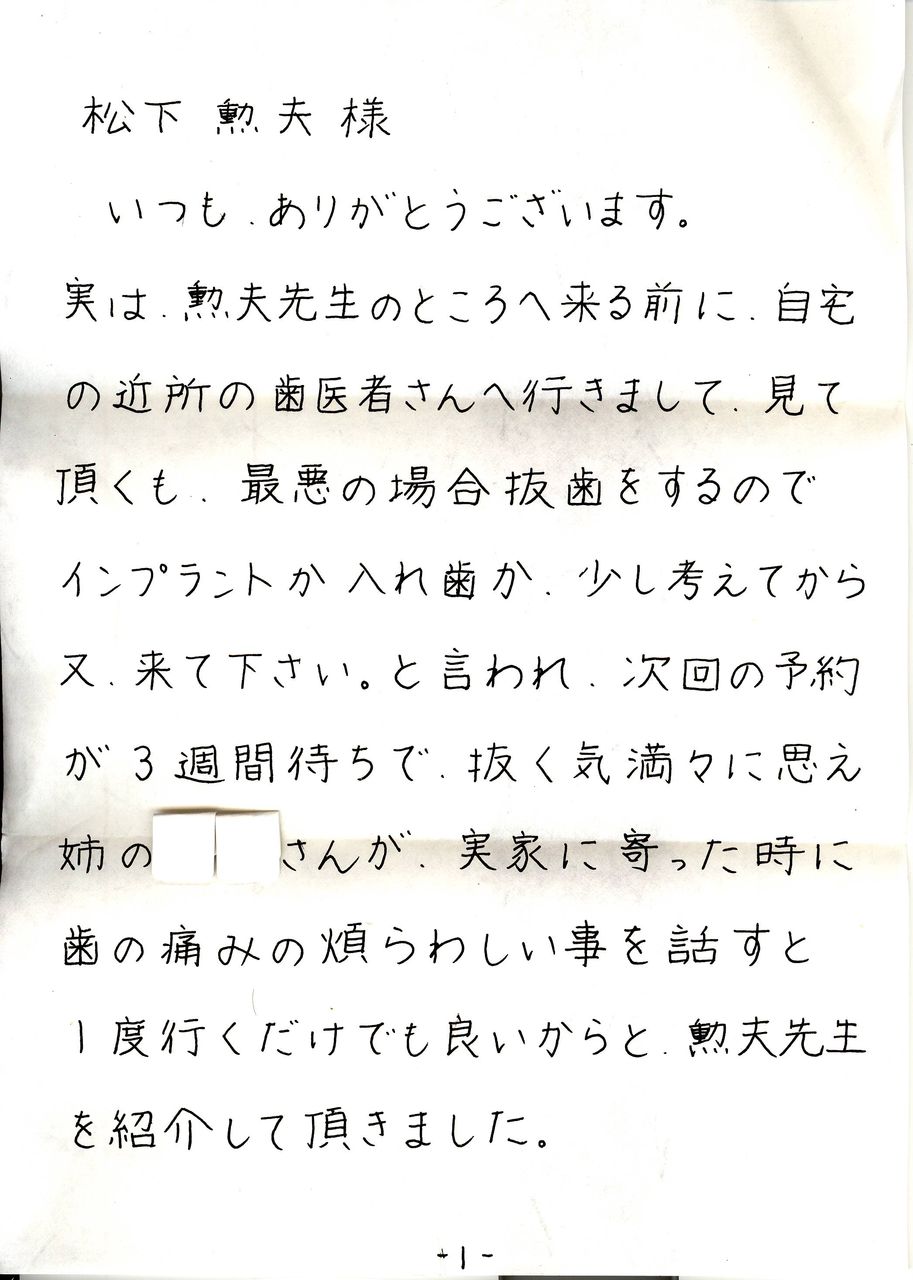 松下 勲夫 様
いつも、ありがとうございます。
実は、勲夫先生のところへ来る前に、自宅
の近所の歯医者さんへ行きまして、見て
頂くも、最悪の場合抜歯をするので
インプラントか入れ歯か、少し考えてから
又、来て下さい。と言われ、次回の予約
が3週間待ちで、抜く気満々に思え
姉の さんが、実家に寄った時に
歯の痛みの煩らわしい事を話すと
1度行くだけでも良いからと、勲夫先生
を紹介して頂きました。
-1-